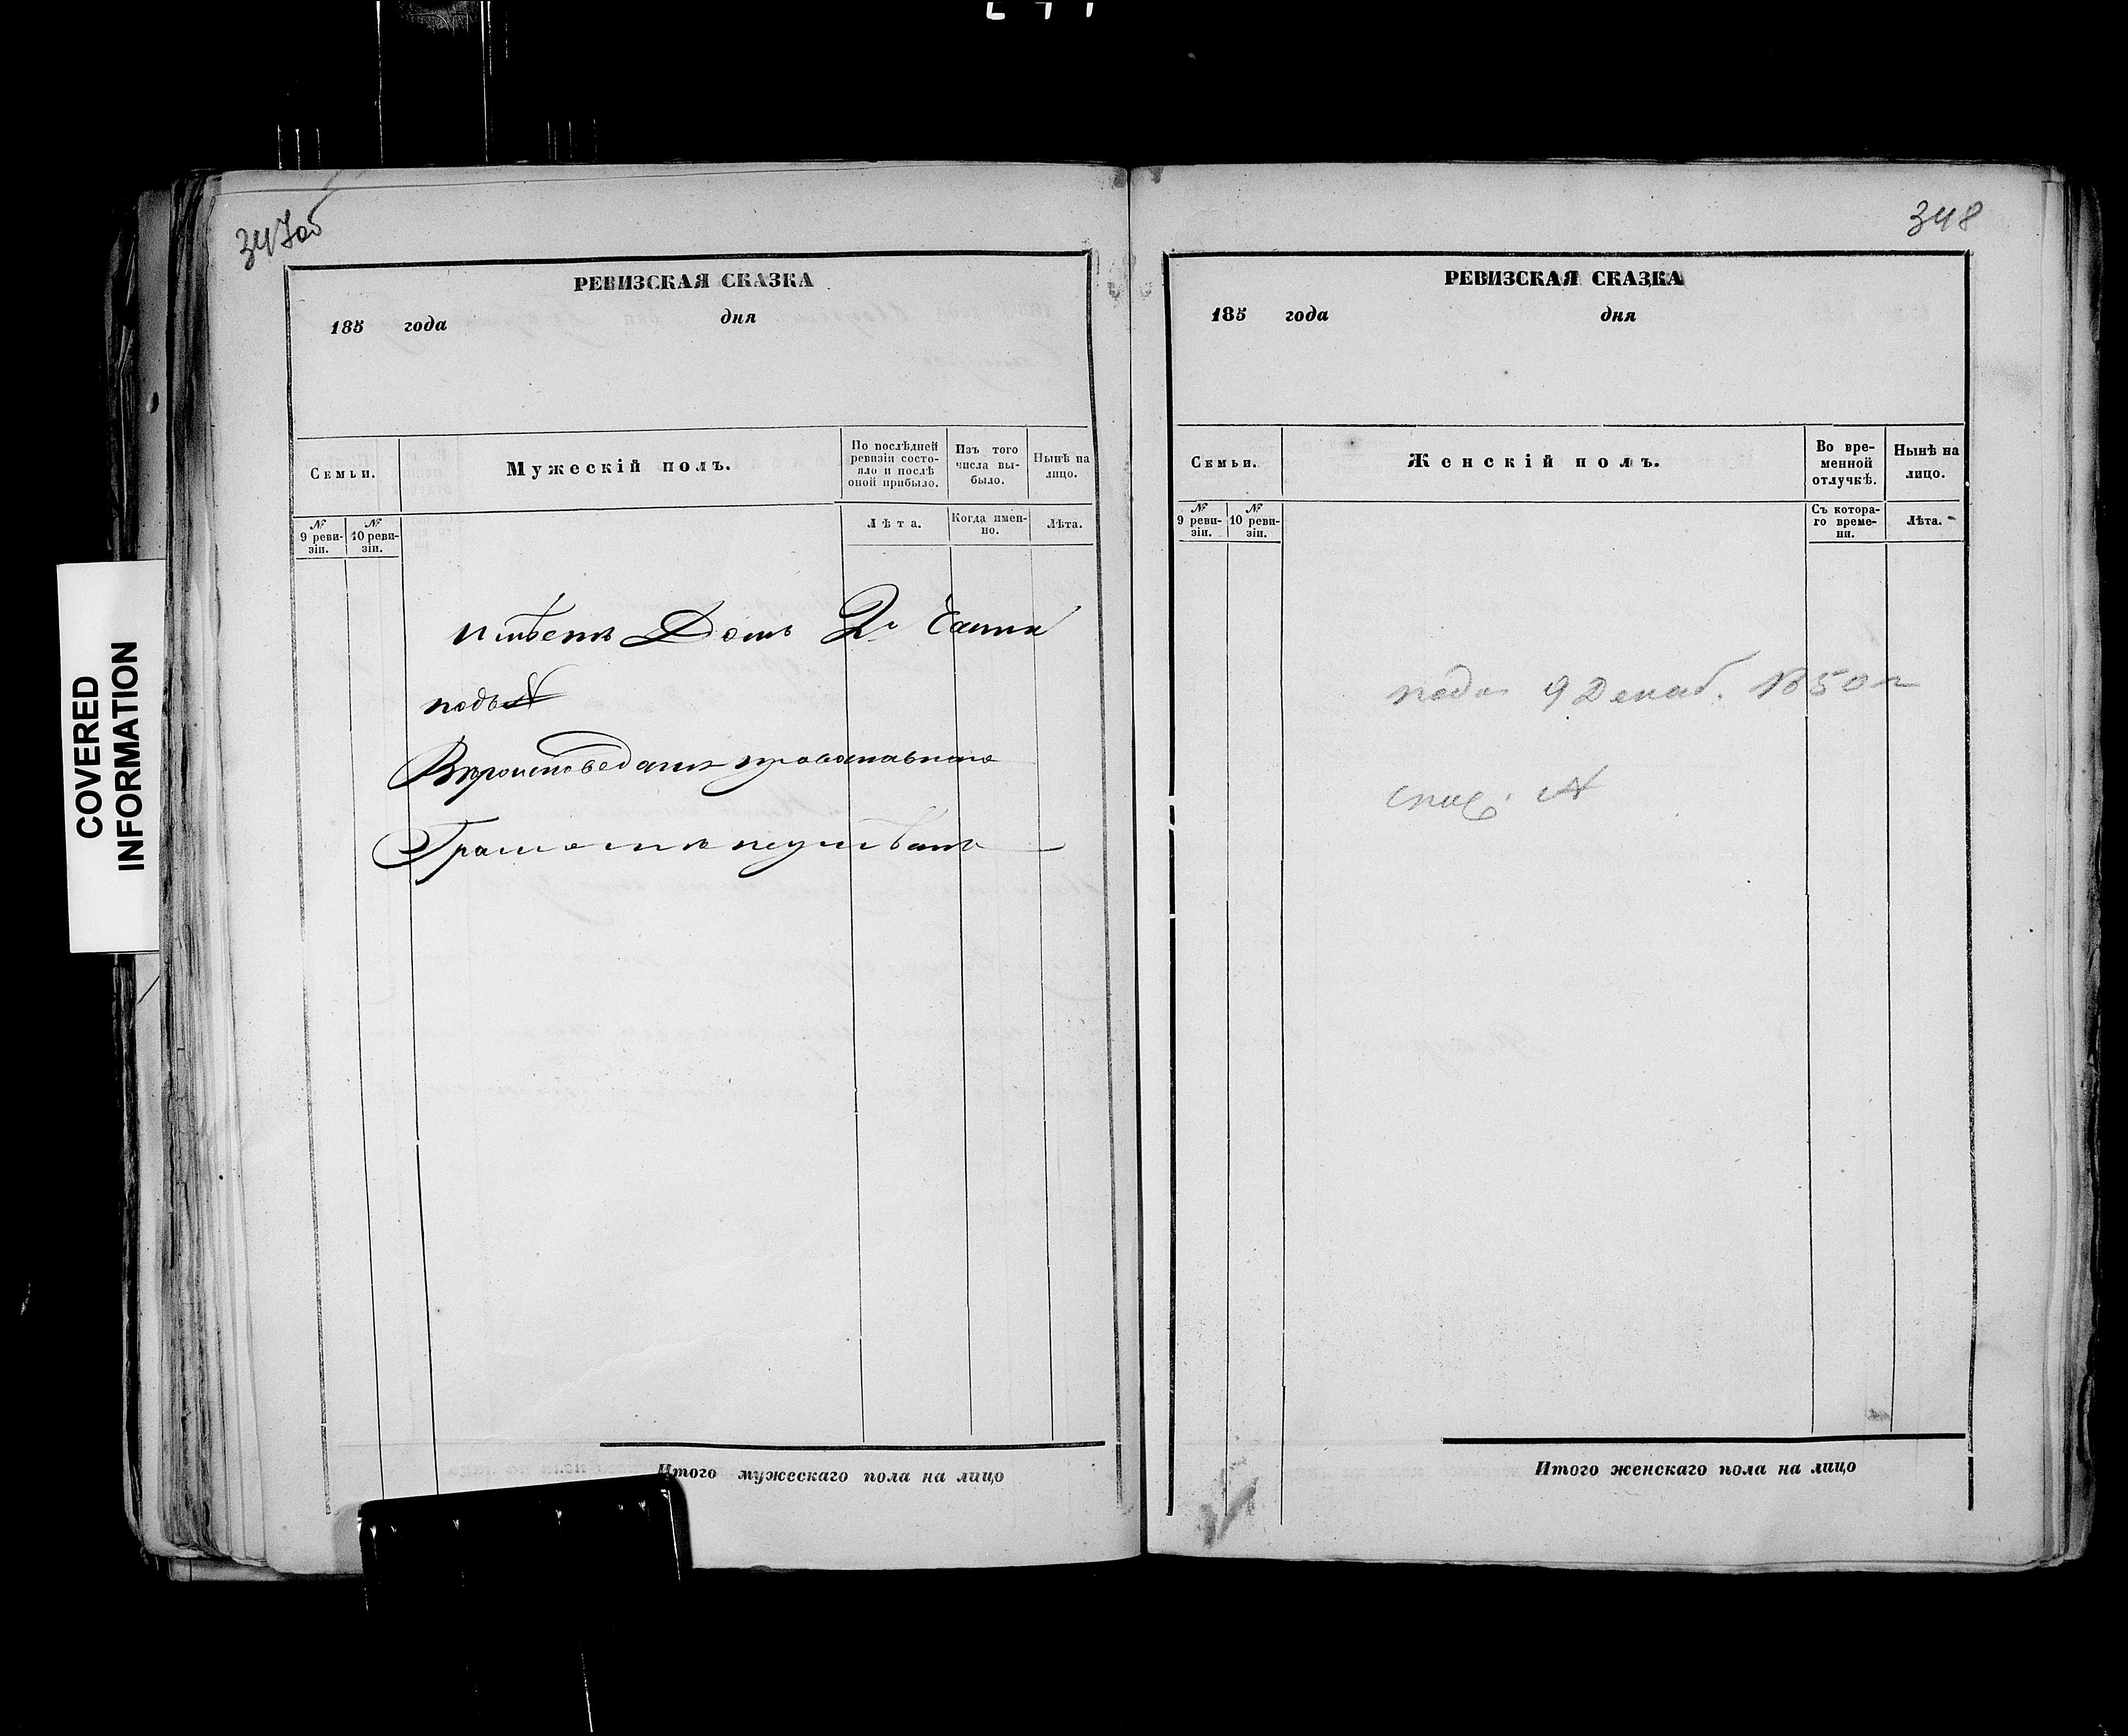 COVERED
INFORMATION
347об
РЕВИЗСКАЯ СКАЗКА
185 года дня
Семьи.
Мужескій полъ.
По послѣдней ревизіи состояло и послѣ оной прибыло.
Изъ того числа выбыло.
Нынѣ на лицо.
№ 9 ревизіи.
№ 10 ревизіи.
Лѣта.
Когда именно.
Лѣта.
имѣетъ Домъ 2й Части
подъ №
Вѣроисповеданія православнаго
Грамотѣ неумѣетъ
Итого мужескаго пола на лицо
348
РЕВИЗСКАЯ СКАЗКА
185 года дня
Семьи.
Женскій полъ.
Во временной отлучкѣ.
Нынѣ на лицо.
№ 9 ревизіи.
№ 10 ревизіи.
Съ котораго времени.
Лѣта.
подан 9 Декаб. 1850 г
№
Итого женскаго пола на лицо